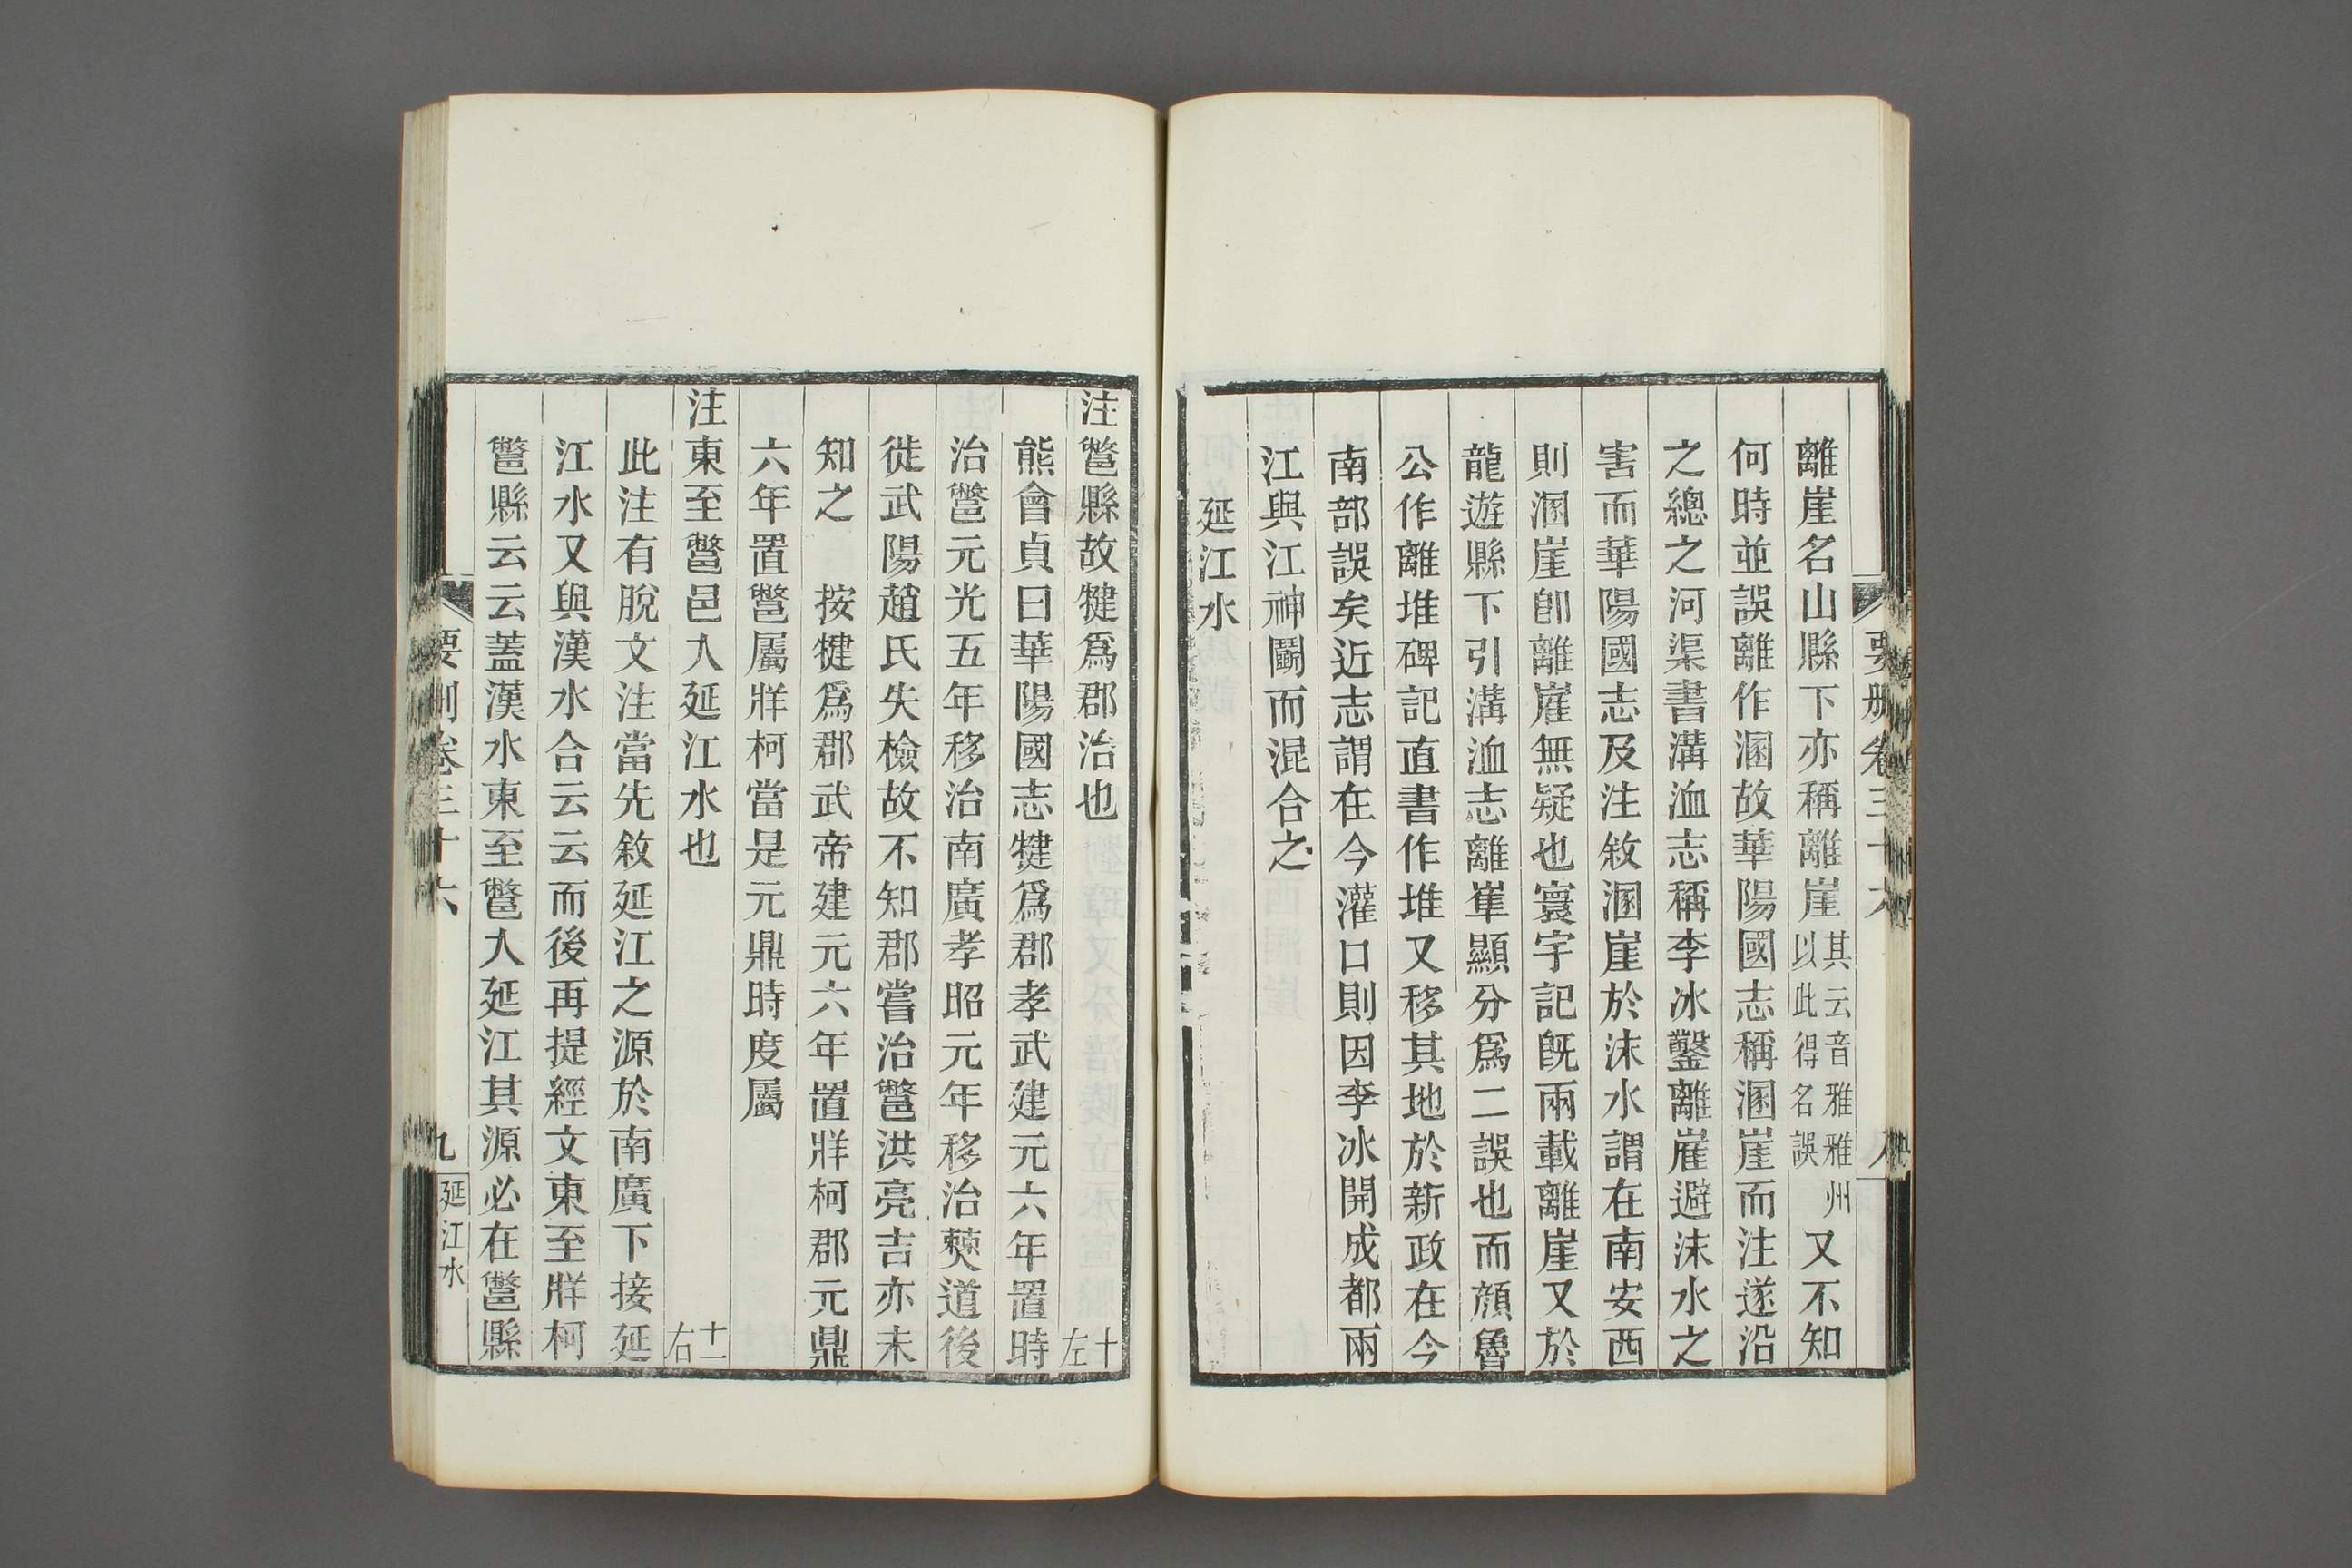 要刪卷三十六 八
離崖名山縣下亦稱離崖其云音雅雅州以此得名誤又不知
何時並誤離作溷故華陽國志稱溷崖而注遂沿
之總之河渠書溝洫志稱李冰鑿離㠑避沫水之
害而華陽國志及注敘溷崖於沫水謂在南安西
則溷崖卽離㠑無疑也寰宇記旣兩載離崖又於
龍遊縣下引溝洫志離崔顯分爲二誤也而顔魯
公作離堆碑記直書作堆又移其地於新政在今
南部誤矣近志謂在今灌口則因李冰開成都兩
江與江神鬭而混合之
延江水
注鄨縣故犍爲郡治也 十左
熊會貞曰華陽國志犍爲郡孝武建元六年置時
治鄨元光五年移治南廣孝昭元年移治僰道後
徙武陽趙氏失檢故不知郡嘗治鄨洪亮吉亦未
知之 按犍爲郡武帝建元六年置牂柯郡元鼎
六年置鄨屬牂柯當是元鼎時度屬
注東至鄨邑入延江水也 十一右
此注有脫文注當先敘延江之源於南廣下接延
江水又與漢水合云云而後再提經文東至牂柯
鄨縣云云蓋漢水東至鄨入延江其源必在鄨縣
要刪卷三十六 九 延江水